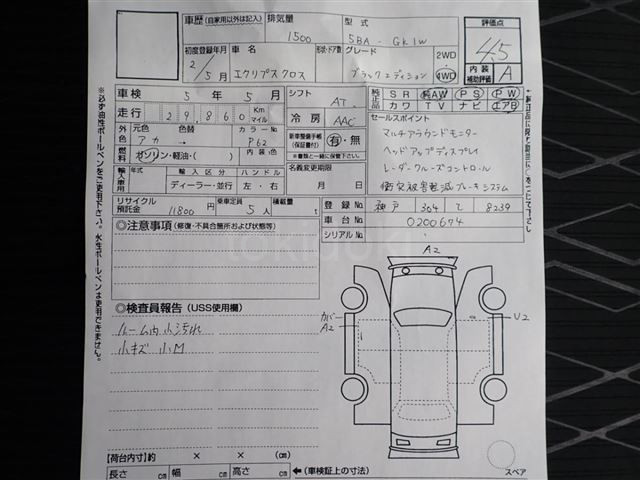 車歴 (自家用以外は記入) 排気量 1500 型式 5BA-GK1W 評価点 4.5
初度登録年月 2/5月 車名 エクリプスクロス 形状・ドア数 グレード ブラックエディション 2WD 4WD 内装補助評価 A
車検 5年5月 シフト AT 純正品 SR 純AW PS PW
走行 29,860 Km マイル 冷房 AAC カワ TV ナビ エアB
外色 元色 色替 カラーNo アカ → P62 新車整備手帳 (保証書付) 有・無 セールスポイント
燃料 ガソリン・軽油・( ) 内装色 ※一緒に保管して下さい。
マルチアラウンドモニター
ヘッドアップディスプレイ
レーダークルーズコントロール
衝突被害軽減ブレーキシステム
輸入車用 年式 輸入区分 ハンドル 名義変更期限
ディーラー・並行 左・右 月 日
リサイクル預託金 11800円 乗車定員 5人 積載量 t 登録No 神戸 304 て 8239
車台No 0200674
シリアルNo
◎注意事項 (修復・不具合箇所および状態等)
A2
◎検査員報告 (USS使用欄)
ルーム内小汚れ
小キズ 小M
カバーA2
U2
【荷台内寸】 × × (cm)
長さ cm 幅 cm 高さ cm ←(車検証上の寸法)
スペア
※必ず油性ボールペンをご使用下さい。水性ボールペンは使用できません。